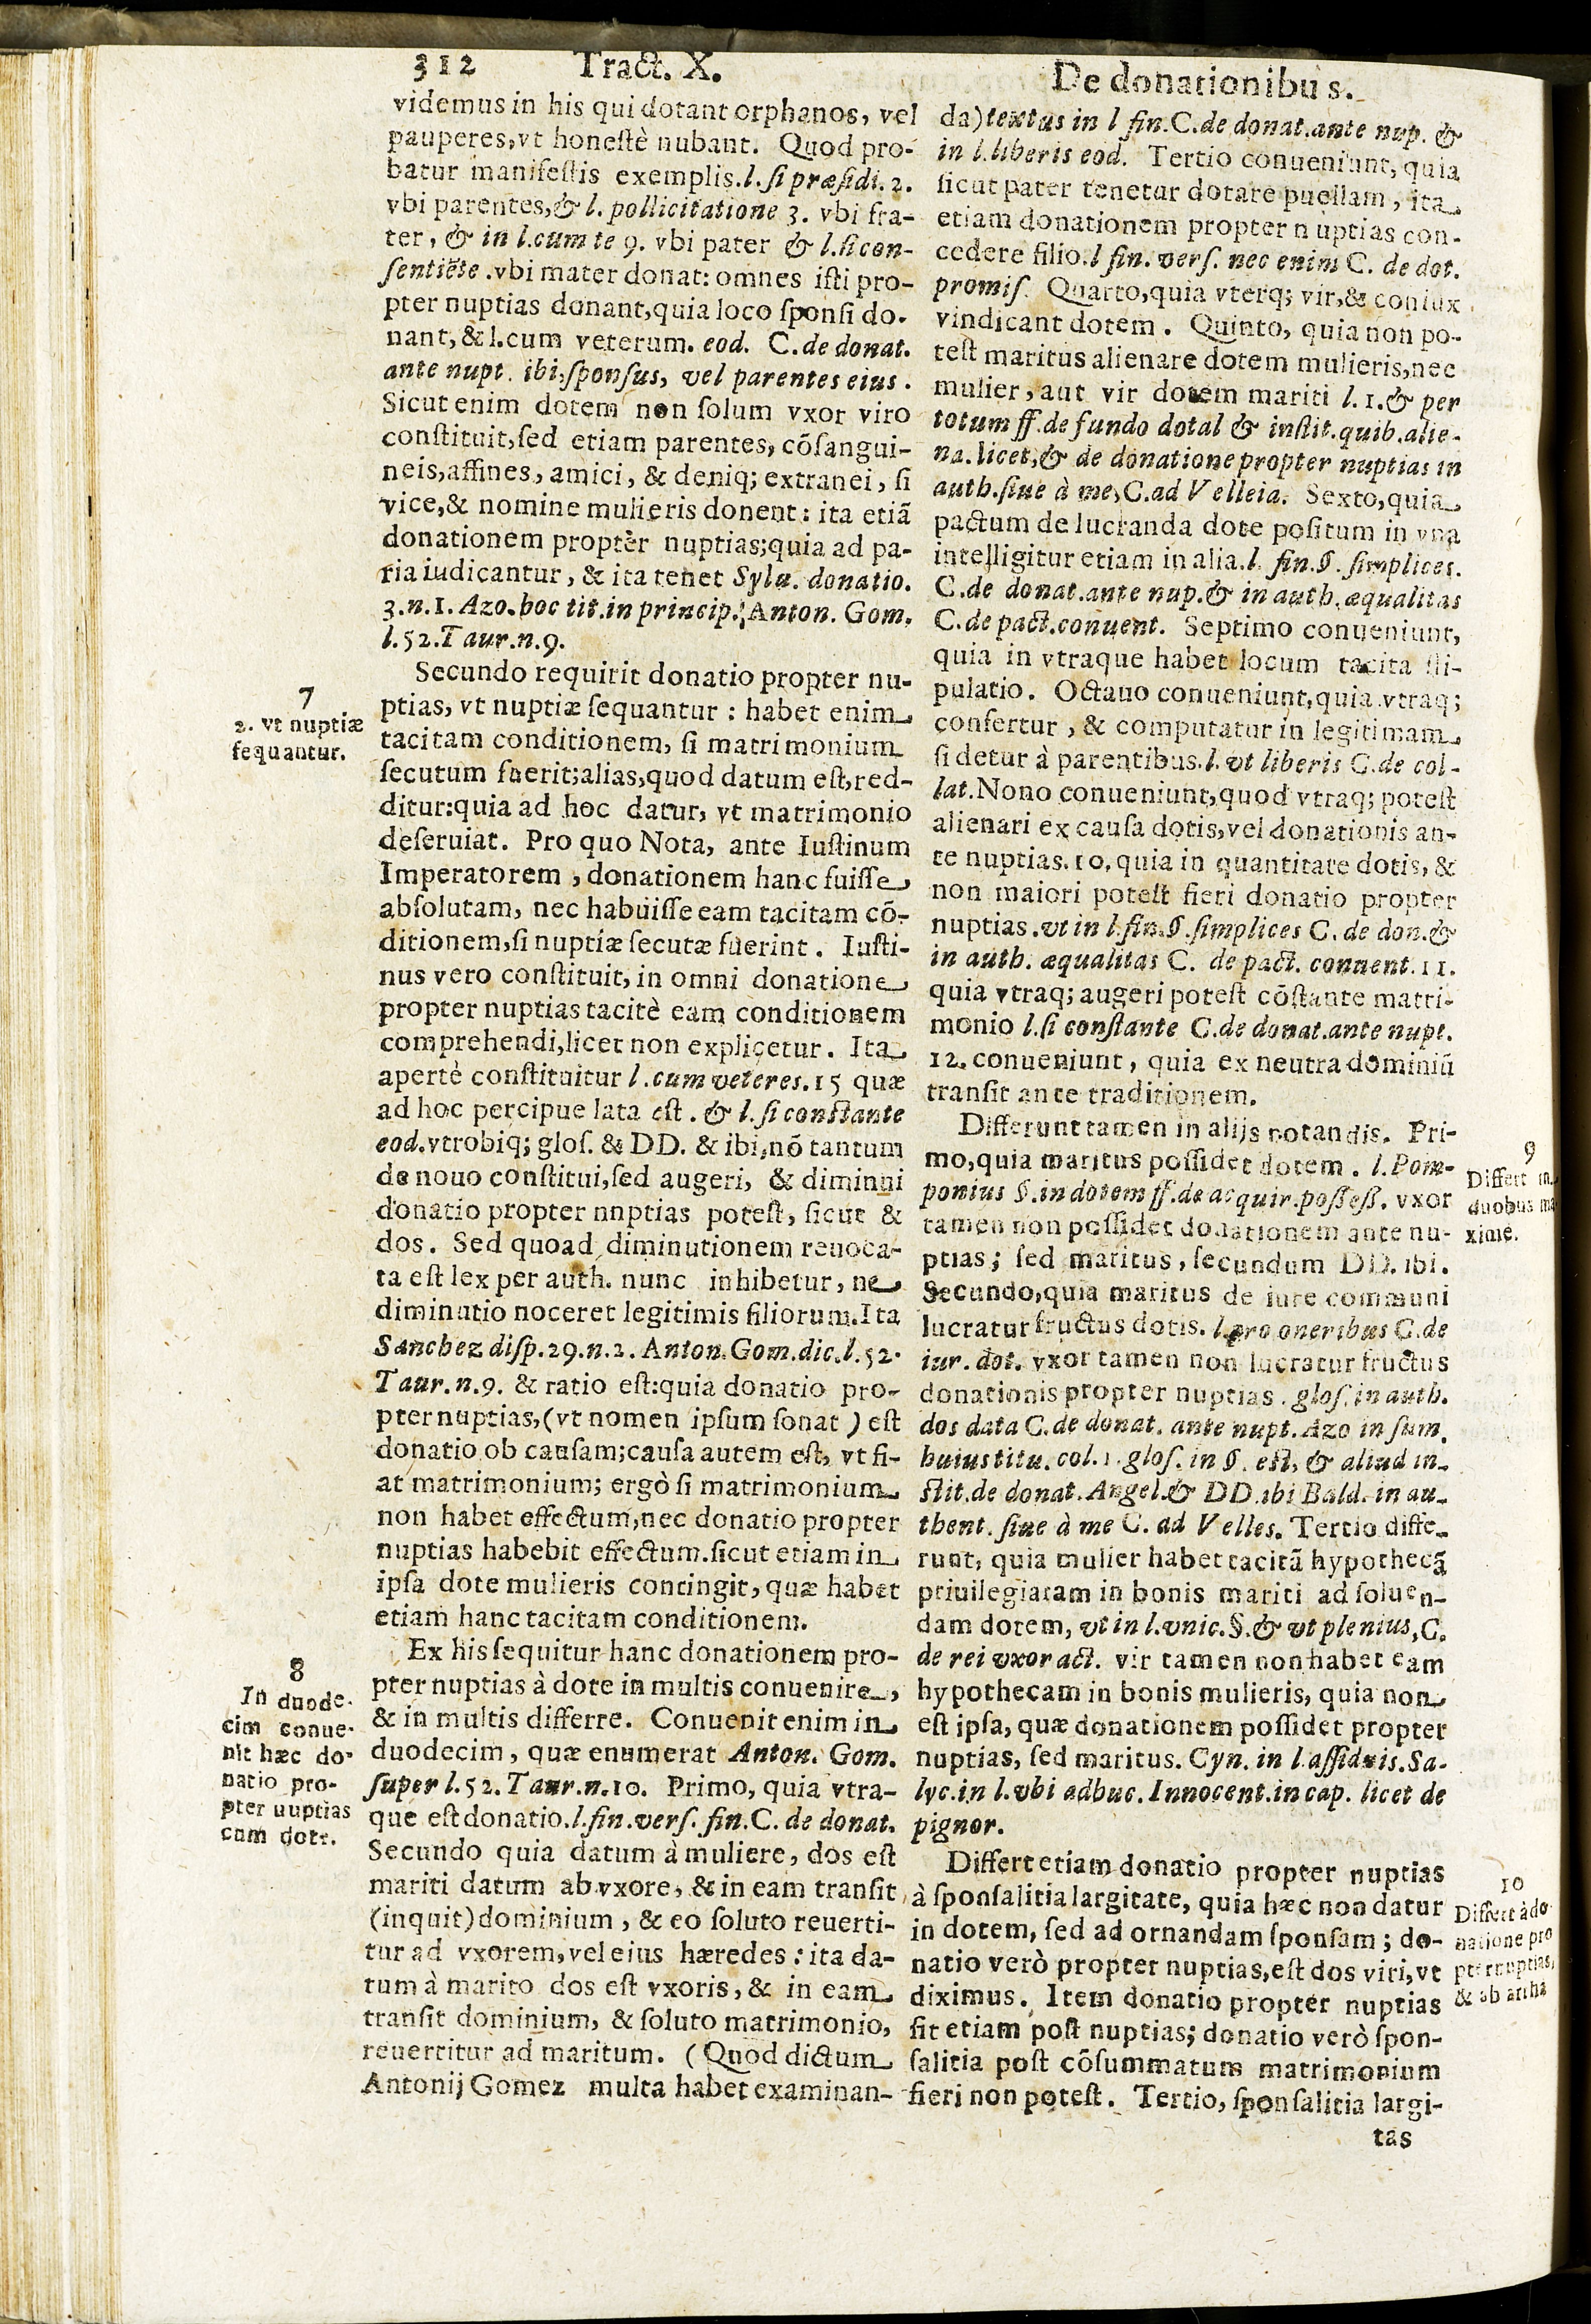 312 Tract. X.
De donationibus.
videmus in his qui dotant orphanos, vel
pauperes, vt honestè nubant. Quod pro-
batur manifestis exemplis. l. si præsidi. 2.
vbi parentes, & l. pollicitatione 3. vbi fra-
ter, & in l. cum te 9. vbi pater & l. si con-
sentiẽte. vbi mater donat: omnes isti pro-
pter nuptias donant, quia loco sponsi do-
nant, & l. cum veterum. eod. C. de donat.
ante nupt. ibi, sponsus, vel parentes eius.
Sicut enim dotem non solum vxor viro
constituit, sed etiam parentes, cõsangui-
neis, affines, amici, & deniq; extranei, si
vice, & nomine mulieris donent: ita etiã
donationem proptèr nuptias; quia ad pa-
ria iudicantur, & ita tenet Sylu. donatio.
3. n. 1. Azo. hoc tit. in princip. Anton. Gom.
l. 52. Taur. n. 9.
7
2. vt nuptiæ
sequantur.
Secundo requirit donatio propter nu-
ptias, vt nuptiæ sequantur: habet enim
tacitam conditionem, si matrimonium
secutum fuerit; alias, quod datum est, red-
ditur: quia ad hoc datur, vt matrimonio
deseruiat. Pro quo Nota, ante Iustinum
Imperatorem, donationem hanc fuisse
absolutam, nec habuisse eam tacitam cõ-
ditionem, si nuptiæ secutæ fuerint. Iusti-
nus vero constituit, in omni donatione
propter nuptias tacitè eam conditionem
comprehendi, licet non explicetur. Ita
apertè constituitur l. cum veteres. 15 quæ
ad hoc percipue lata est. & l. si constante
eod. vtrobiq; glos. & DD. & ibi, nõ tantum
de nouo constitui, sed augeri, & diminui
donatio propter nnptias potest, sicut &
dos. Sed quoad diminutionem reuoca-
ta est lex per auth. nunc inhibetur, ne
diminutio noceret legitimis filiorum. Ita
Sanchez disp. 29. n. 2. Anton. Gom. dic. l. 52.
Taur. n. 9. & ratio est: quia donatio pro-
pter nuptias, (vt nomen ipsum sonat) est
donatio ob causam; causa autem est, vt fi-
at matrimonium; ergò si matrimonium
non habet effectum, nec donatio propter
nuptias habebit effectum. sicut etiam in
ipsa dote mulieris contingit, quæ habet
etiam hanc tacitam conditionem.
8
In duode-
cim conue-
nit hæc do-
natio pro-
pter uuptias
cum dote.
Ex his sequitur hanc donationem pro-
pter nuptias à dote in multis conuenire,
& in multis differre. Conuenit enim in
duodecim, quæ enumerat Anton. Gom.
super l. 52. Taur. n. 10. Primo, quia vtra-
que est donatio. l. fin. vers. fin. C. de donat.
Secundo quia datum à muliere, dos est
mariti datum ab vxore, & in eam transit
(inquit) dominium, & eo soluto reuerti-
tur ad vxorem, vel eius hæredes: ita da-
tum à marito dos est vxoris, & in eam
transit dominium, & soluto matrimonio,
reuertitur ad maritum. (Quod dictum
Antonij Gomez multa habet examinan-
da) textus in l fin. C. de donat. ante nup. &
in l. liberis eod. Tertio conueniunt, quia
sicut pater tenetur dotare puellam, ita
etiam donationem propter nuptias con-
cedere filio. l fin. vers. nec enim C. de dot.
promis. Quarto, quia vterq; vir, & coniux
vindicant dotem. Quinto, quia non po-
test maritus alienare dotem mulieris, nec
mulier, aut vir dotem mariti l. 1. & per
totum ff. de fundo dotal & instit. quib. alie-
na. licet, & de donatione propter nuptias in
auth. siue à me, C. ad Velleia. Sexto, quia
pactum de lucranda dote positum in vna
intelligitur etiam in alia. l. fin. §. simplices.
C. de donat. ante nup. & in auth. æqualitas
C. de pact. conuent. Septimo conueniunt,
quia in vtraque habet locum tacita sti-
pulatio. Octauo conueniunt, quia vtraq;
confertur, & computatur in legitimam
si detur à parentibus. l. vt liberis C. de col-
lat. Nono conueniunt, quod vtraq; potest
alienari ex causa dotis, vel donationis an-
te nuptias. 10. quia in quantitate dotis, &
non maiori potest fieri donatio propter
nuptias. vt in l. fin. §. simplices C. de don. &
in auth. æqualitas C. de pact. conuent. 11.
quia vtraq; augeri potest cõstante matri-
monio l. si constante C. de donat. ante nupt.
12. conueniunt, quia ex neutra dominiũ
transit ante traditionem.
9
Differt in
duobus ma
xime.
Differunt tamen in alijs notandis. Pri-
mo, quia maritus possidet dotem. l. Pom-
ponius §. in dotem ff. de acquir. possess. vxor
tamen non possidet donationem ante nu-
ptias; sed maritus, secundum DD. ibi.
Secundo, quia maritus de iure communi
lucratur fructus dotis. l. pro oneribus C. de
iur. dot. vxor tamen non lucratur fructus
donationis propter nuptias. glos. in auth.
dos data C. de donat. ante nupt. Azo in sum.
huius titu. col. 1. glos. in §. est, & aliud in-
stit. de donat. Angel. & DD. ibi Bald. in au-
thent. siue à me C. ad Velles. Tertio diffe-
runt, quia mulier habet tacitã hypothecã
priuilegiatam in bonis mariti ad soluen-
dam dotem, vt in l. vnic. §. & vt plenius, C.
de rei vxor act. vir tamen non habet eam
hypothecam in bonis mulieris, quia non
est ipsa, quæ donationem possidet propter
nuptias, sed maritus. Cyn. in l. assiduis. Sa-
lyc. in l. vbi adhuc. Innocent. in cap. licet de
pignor.
10
Differt à do
natione pro
pter nuptias,
& ab arrha
Differt etiam donatio propter nuptias
à sponsalitia largitate, quia hæc non datur
in dotem, sed ad ornandam sponsam; do-
natio verò propter nuptias, est dos viri, vt
diximus. Item donatio propter nuptias
fit etiam post nuptias; donatio verò spon-
salitia post cõsummatum matrimonium
fieri non potest. Tertio, sponsalitia largi-
tas